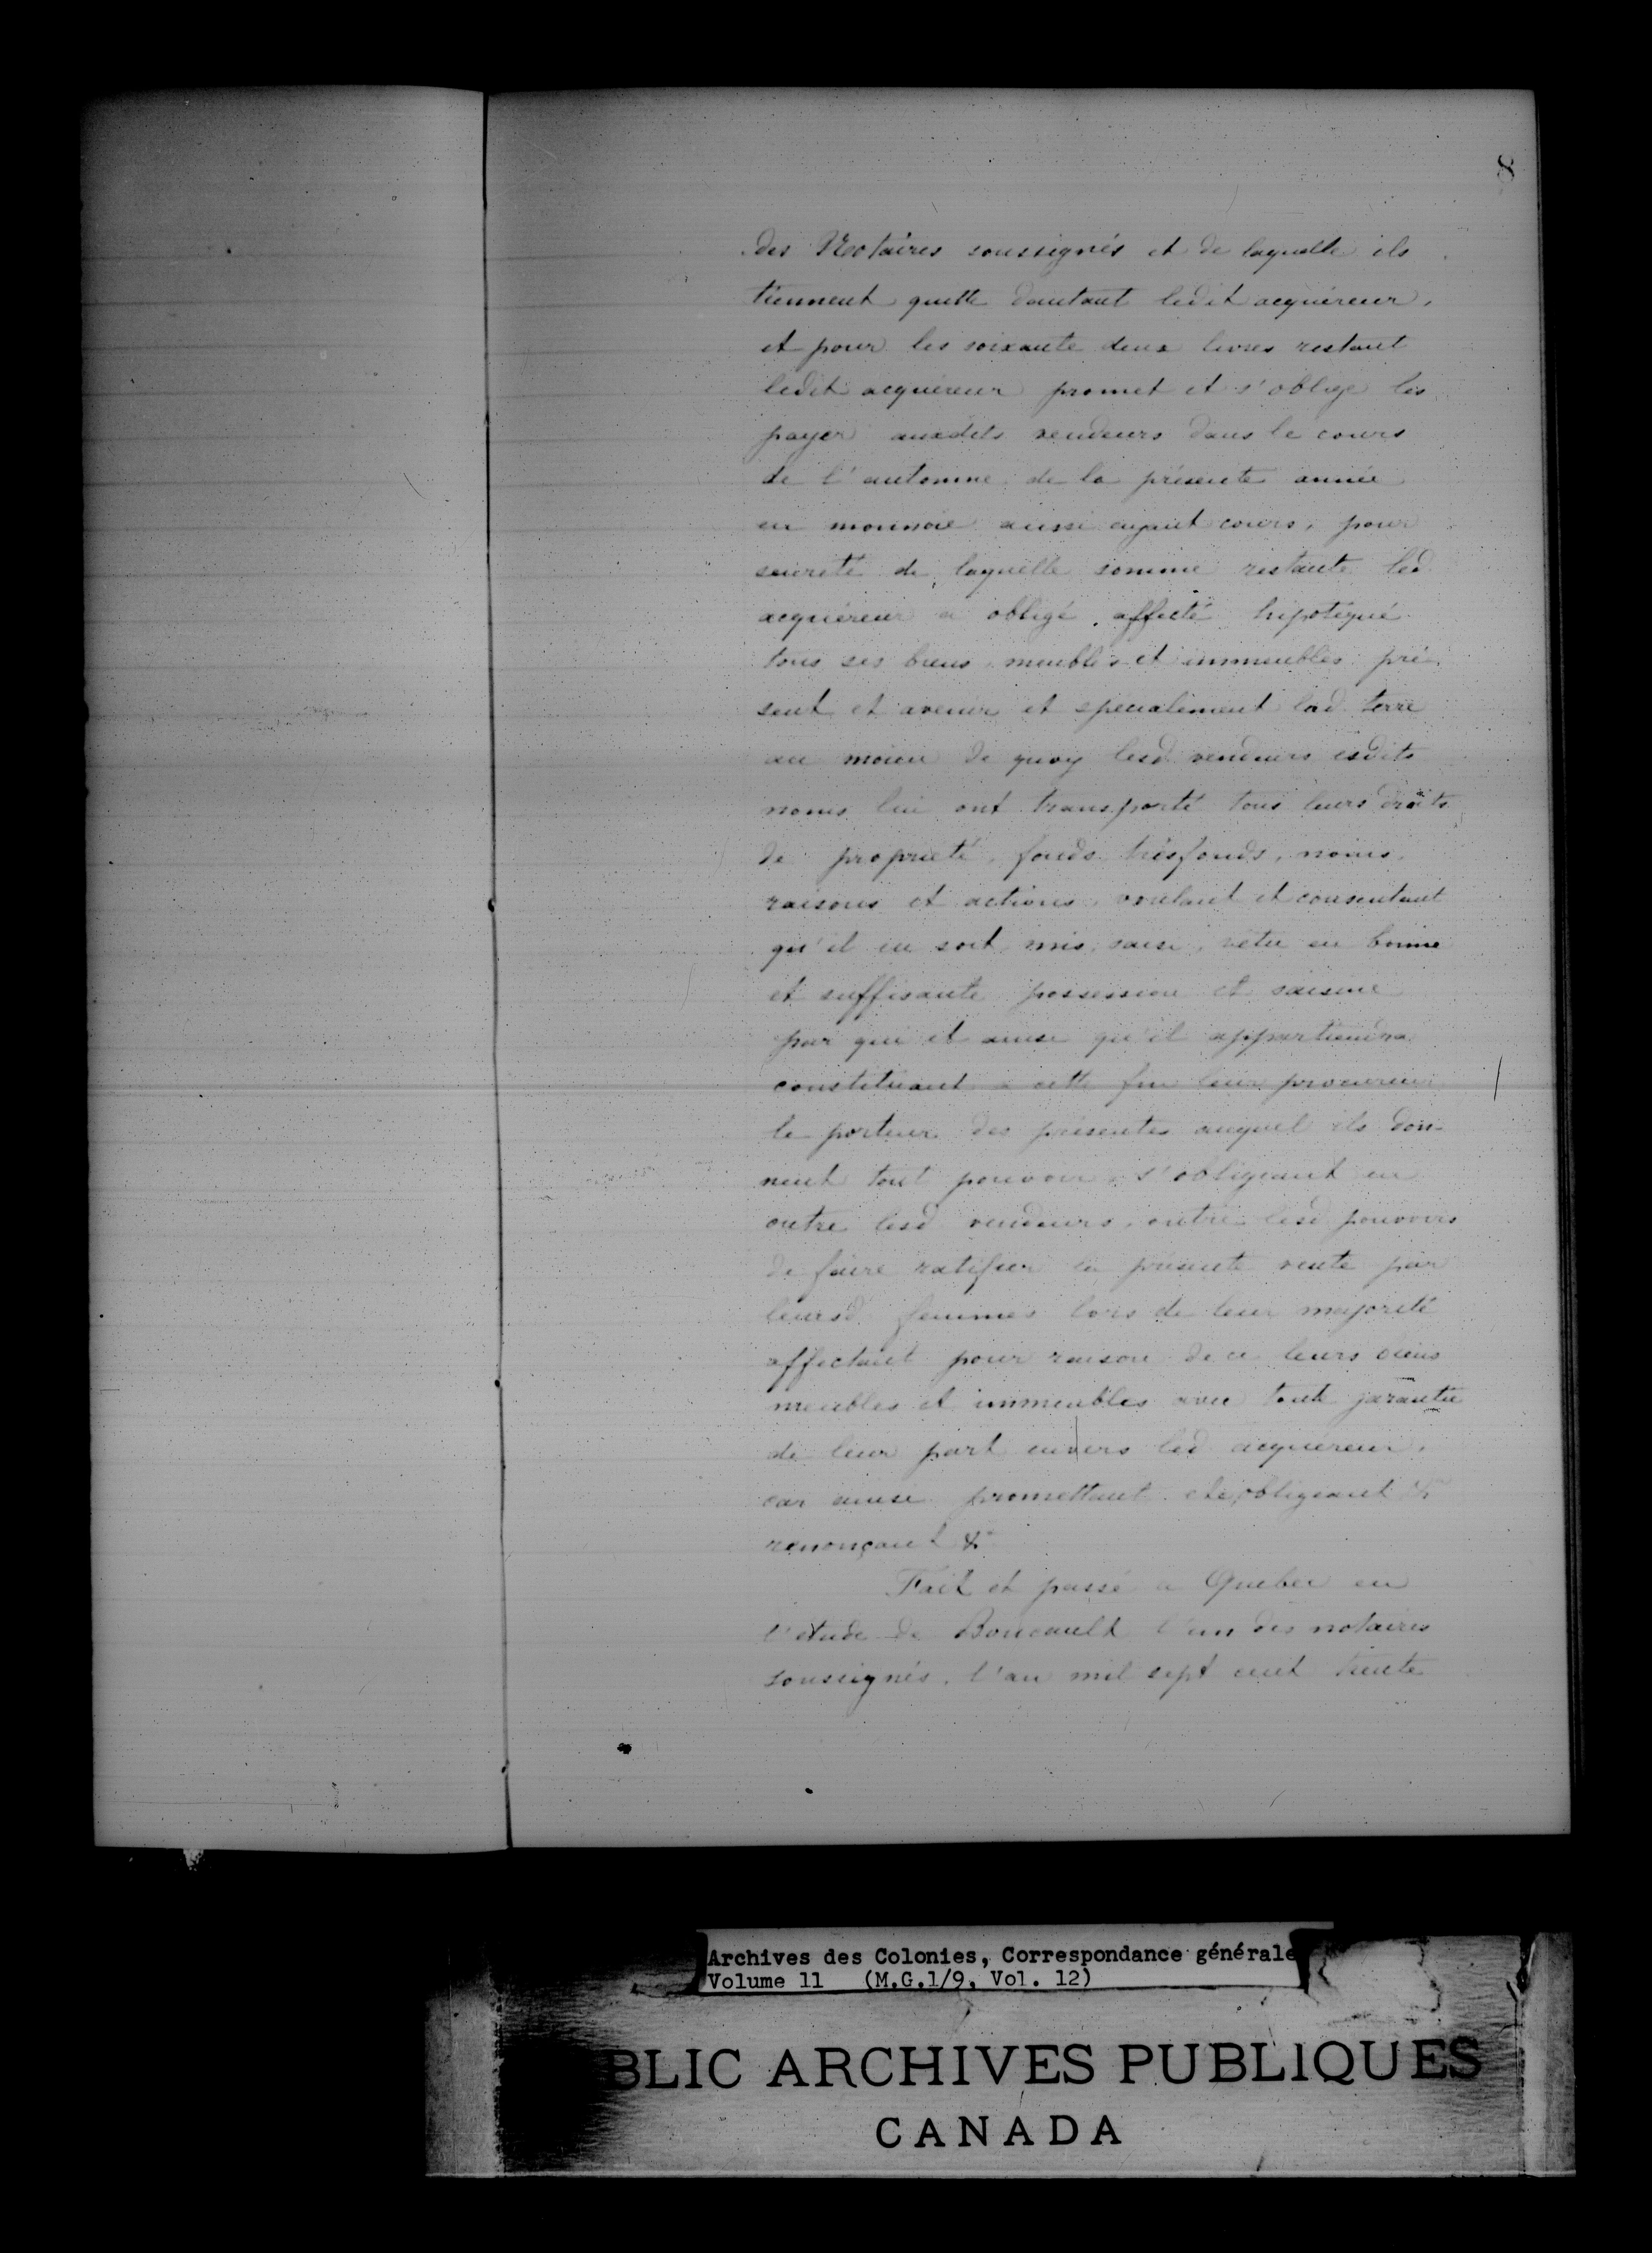 8
des Notaires soussignés et de laquelle ils
tiennent quitte dautant ledit acquéreur,
et pour les soixante deux livres restant
ledit acquéreur promet et s'oblige les
payer auxdits vendeurs dans le cours
de l'automne de la présente année
en monnoie aussi ayant cours, pour
seureté de laquelle somme restante led
acquéreur a obligé, affecté hipotéqué
tous ses biens meubles et immeubles pré
sent et avenir et specialement lad terre
au moien de quoy lesd vendeurs esdits
noms lui ont transporté tous leurs droits
de propriété, fonds trésfonds, noms,
raisons et actions, voulant et consentant
qu'il en soit mis, saisi, vetu en bonne
et suffisante possession et saisine
par qui et ainsi qu'il appartiendra
constituant a cette fin leur procureur
le porteur des présentes auquel ils don
nent tout pouvoir, s'obligeant en
outre lesd vendeurs, outre lesd pouvoirs
de faire ratifier la présente vente par
leursd femmes lors de leur majorité
affectant pour raison de ce leurs biens
meubles et immeubles avec toute garantie
de leur part envers led acquéreur,
car ainsi promettant etc, obligeant &
renonçant &
Fait et passé a Quebec en
l'étude de Boucault l'un des notaires
soussignés, l'an mil sept cent trente
Archives des Colonies, Correspondance générale
Volume 11 (M.G.1/9, Vol. 12)
BLIC ARCHIVES PUBLIQUES
CANADA